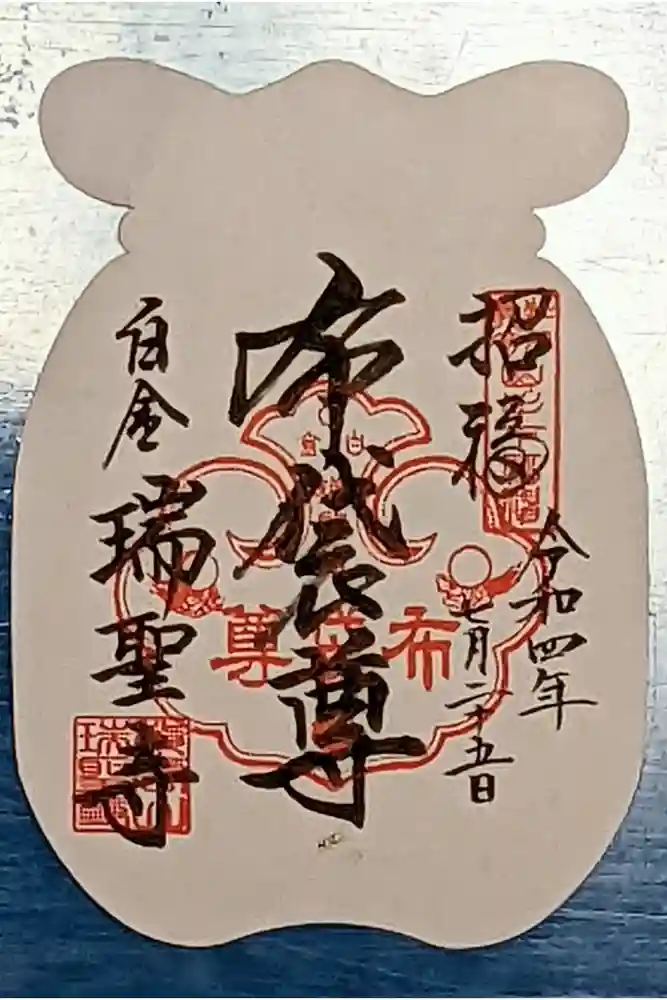 招福
令和四年
七月二十五日
布袋尊
白金
瑞聖寺
布袋尊
白金